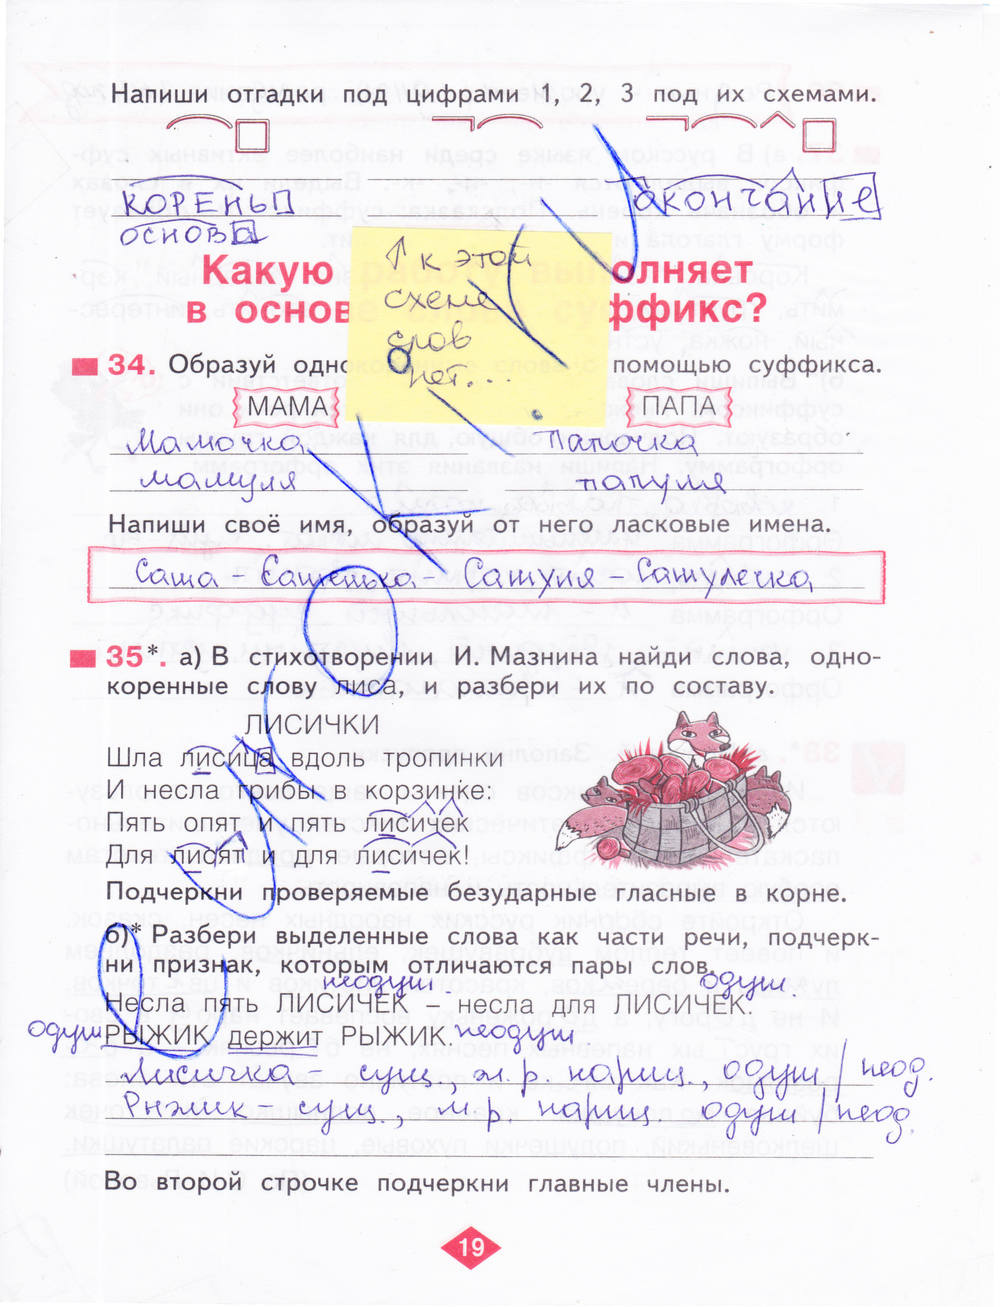 Напиши отгадки под цифрами 1, 2, 3 под их схемами.
КОРЕНЬП
основа
окончание
Какую работу выполняет
в основе слова суффикс?
↑ к этой
схеме
слов
нет...
34. Образуй одно помощью суффикса.
МАМА ПАПА
Мамочка Папочка
мамуля папуля
Напиши своё имя, образуй от него ласковые имена.
Саша Сашенька - Сашуля - Сашулечка
35*. а) В стихотворении И. Мазнина найди слова, одно-
коренные слову лиса, и разбери их по составу.
ЛИСИЧКИ
Шла лисица вдоль тропинки
И несла грибы в корзинке:
Пять опят и пять лисичек
Для лисят и для лисичек!
Подчеркни проверяемые безударные гласные в корне.
б)* Разбери выделенные слова как части речи, подчерк-
ни признак, которым отличаются пары слов.
неодуш. одуш.
Несла пять ЛИСИЧЕК – несла для ЛИСИЧЕК.
одуш РЫЖИК держит РЫЖИК. неодуш.
Лисичка – сущ., ж. р. нариц., одуш / неод.
Рыжик – сущ., м.р. нариц. одуш / неод.
Во второй строчке подчеркни главные члены.
19